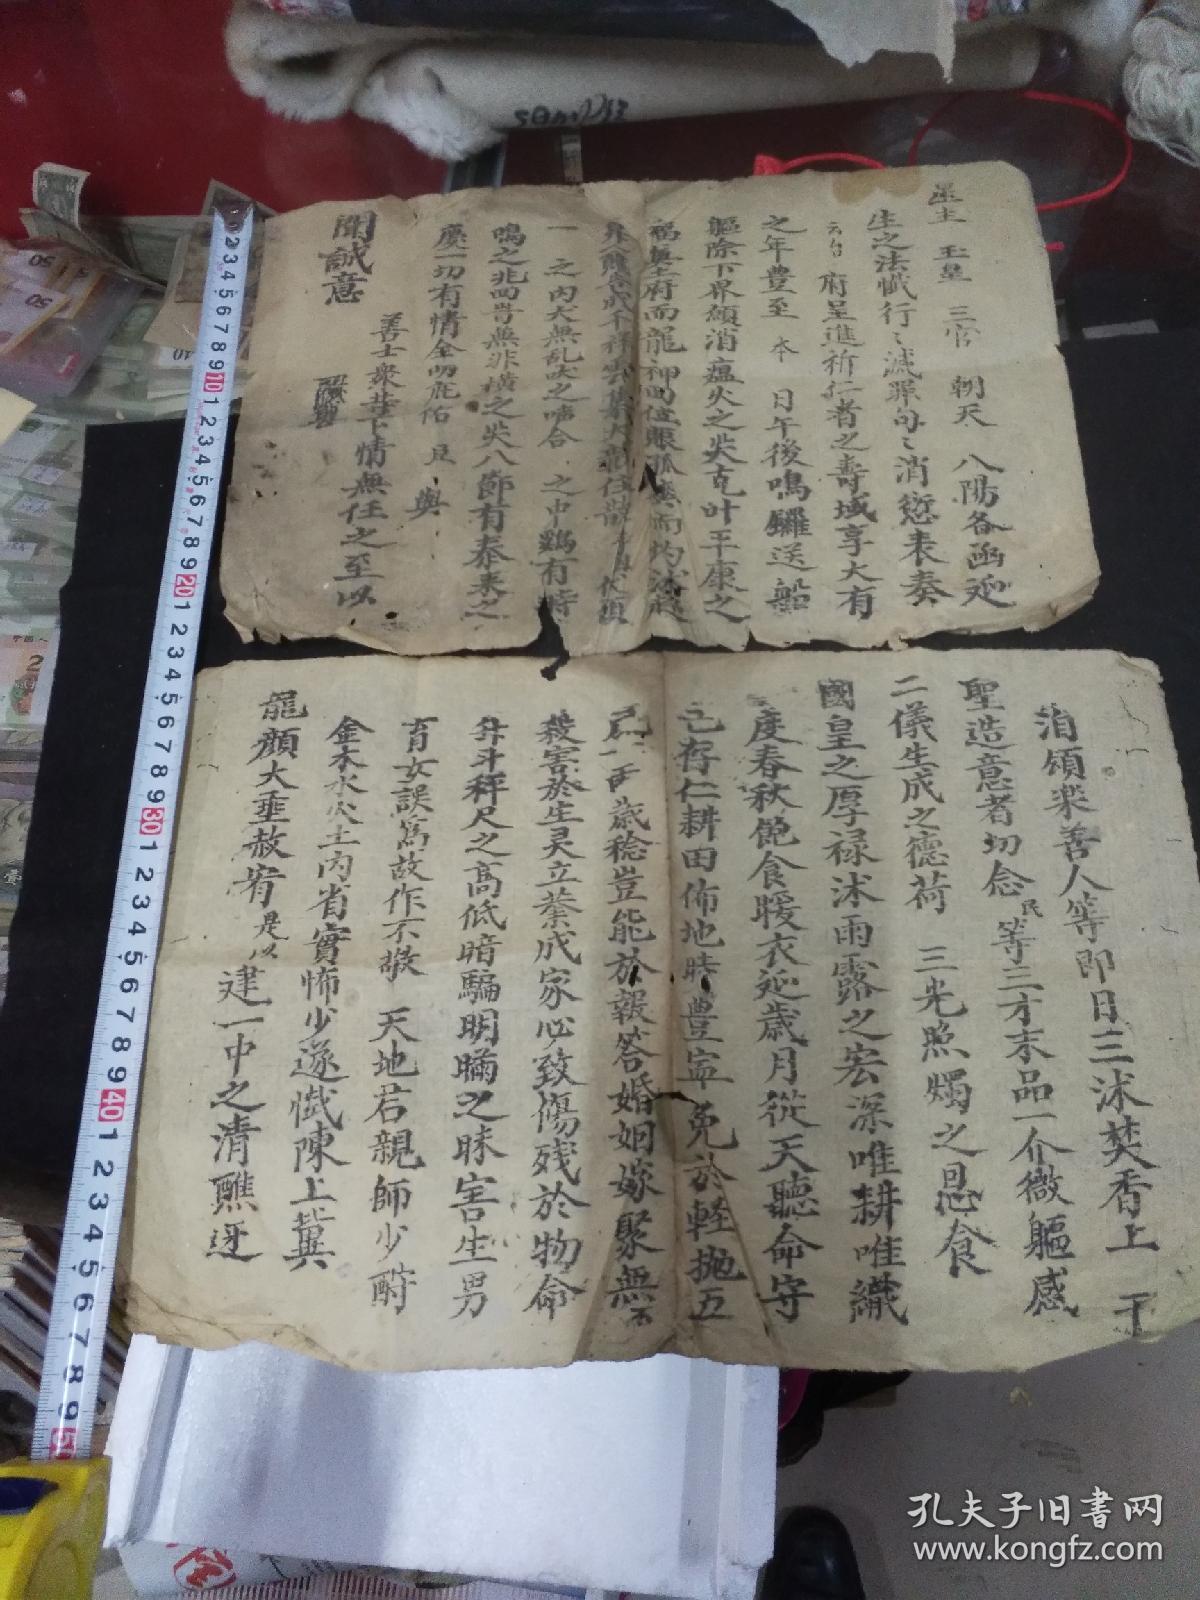 星主 玉皇 三官 朝天 八陽各函延
生之法懺行〻滅罪句〻消愆表奏
府呈進祈仁者之壽域享大有
之年豊至 本 日午後鳴鑼送船
驅除下界傾消瘟火之灾克叶平康之
一 之内犬無乱吠之 合 之中鷄有時
鳴之兆四 無非横之灾八節有泰来之
慶一切有情全叨庇佑 與
善士衆等下情無任之至以
聞誠意
涓領衆善人等即日三沐焚香上 干
聖造意者切念民等三才末品一介微軀感
二儀生成之德荷 三光照燭之恩食
國皇之厚禄沐雨露之宏深唯耕唯織
度春秋飽食暖衣延歳月從天聽命守
己存仁耕田佈地時豊寧免於軽抛五
歳稔豈能於報答婚姻嫁聚無不
殺害於生灵立業成家必致傷残於物命
升斗秤尺之高低暗騙明瞞之昧害生男
育女誤為故作不敬 天地君親師少酧
金木水火土内省實怖少遂懺陳上冀
龍顔大垂赦宥是以建一中之清醮迓
孔夫子旧书网
www.kongfz.com